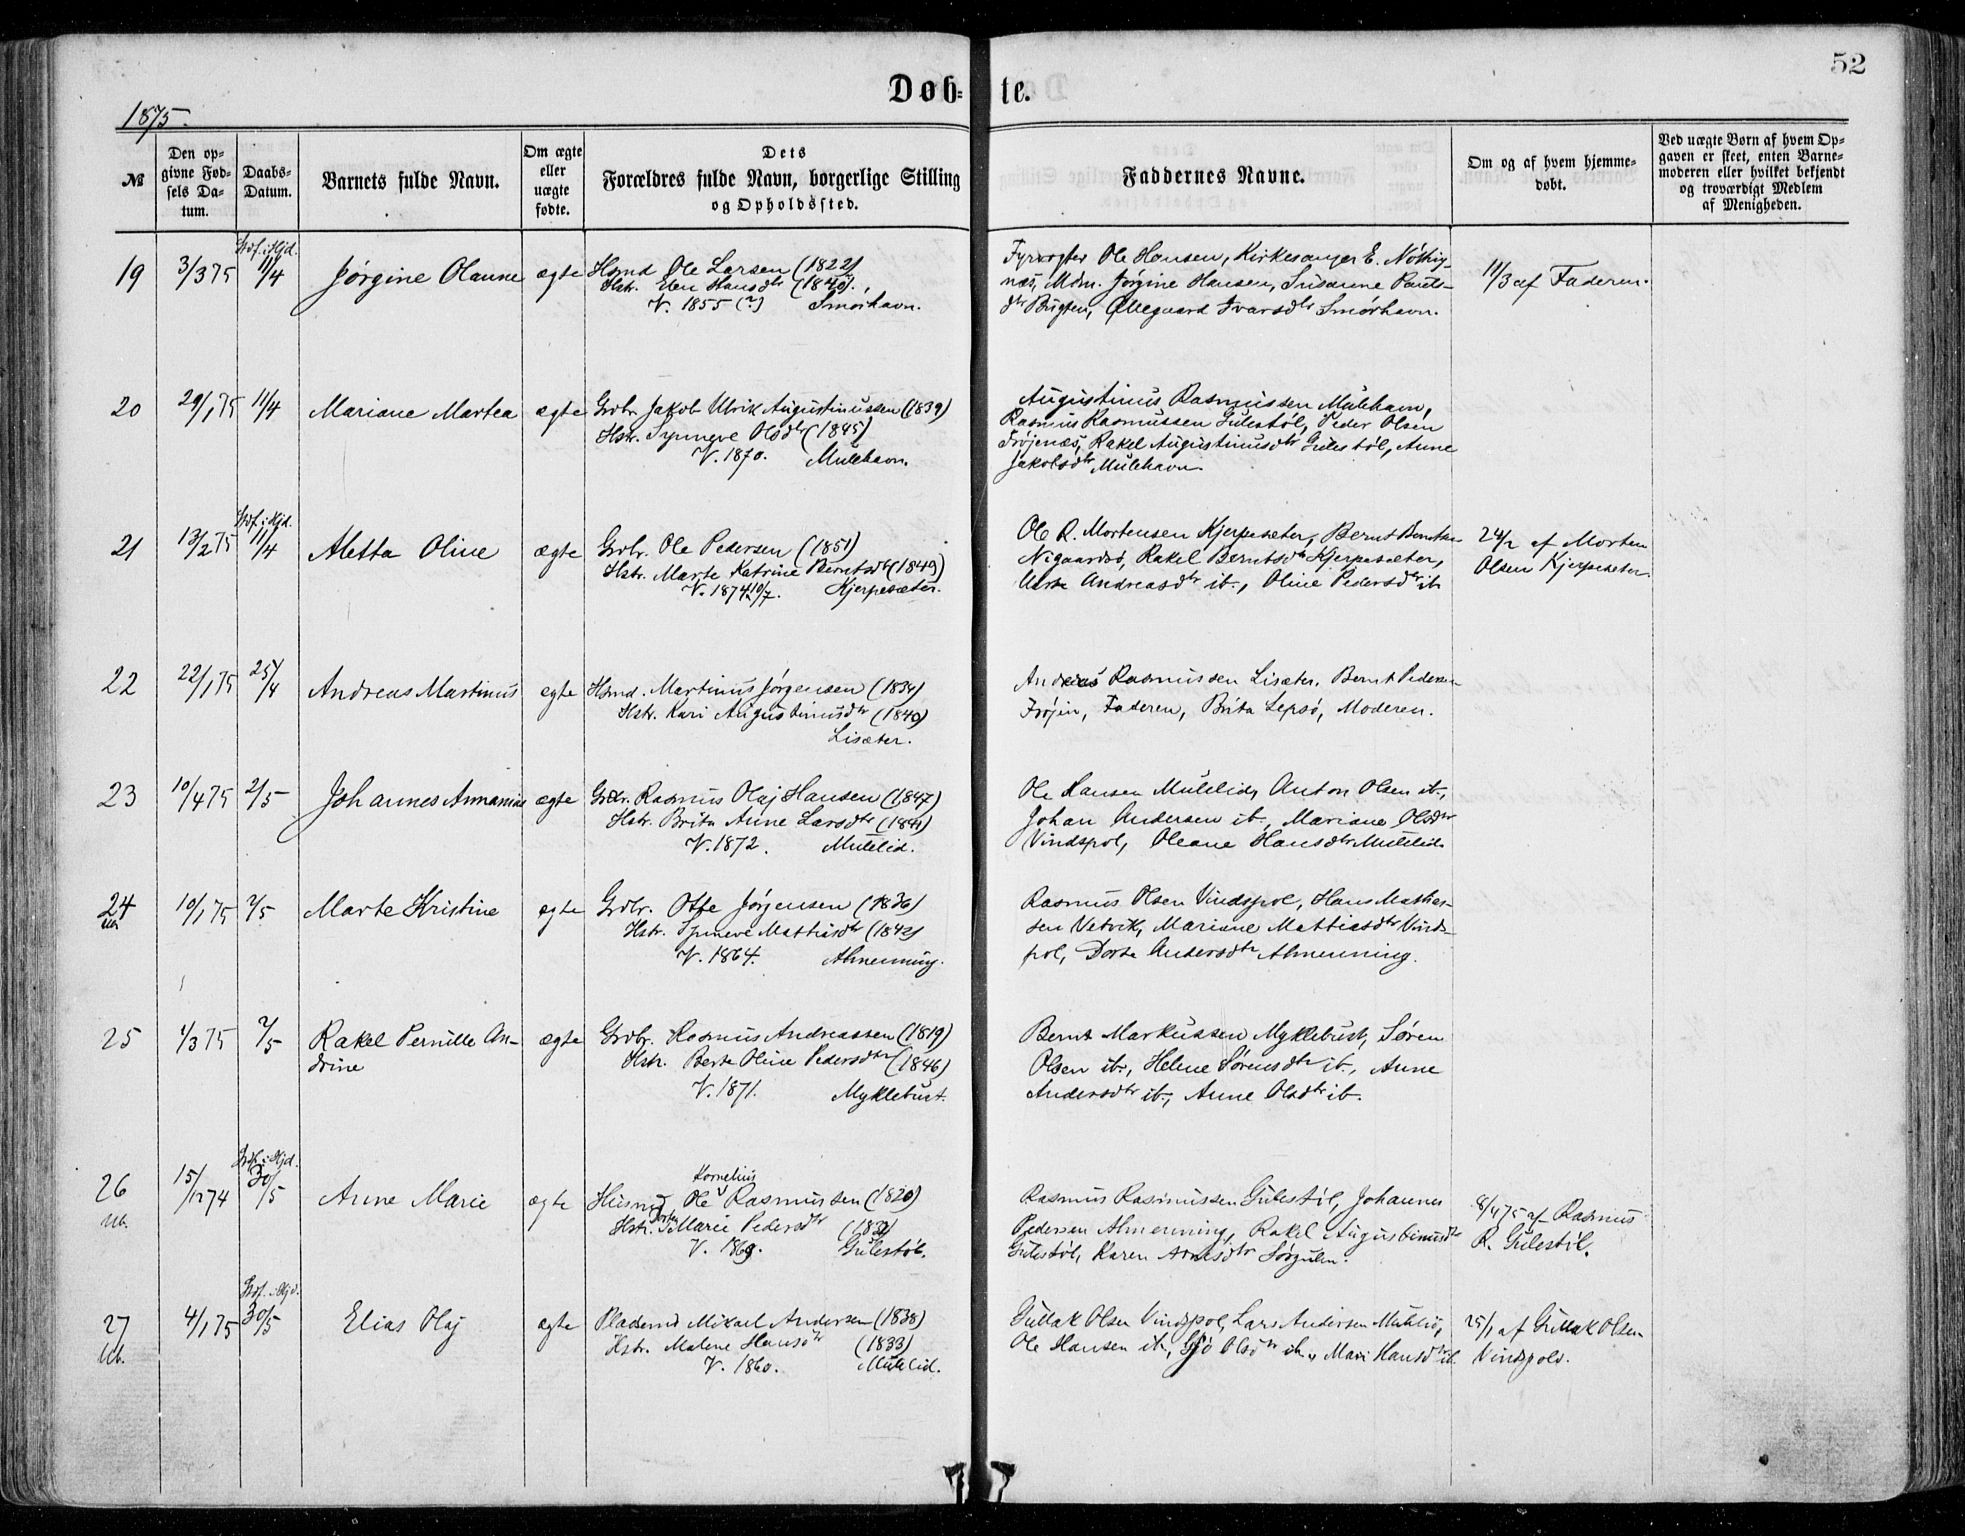 52
Døb- te.
1875.
№
Den op-
givne Fød-
sels Da-
tum.
Daabs-
Datum.
Barnets fulde Navn.
Om ægte
eller
uægte
fødte.
Dets
Forældres fulde Navn, borgerlige Stilling
og Opholdssted.
Faddernes Navne.
Om og af hvem hjemme-
døbt.
Ved uægte Børn af hvem Op-
gaven er skeet, enten Barne-
moderen eller hvilket bekjendt
og troværdigt Medlem
af Menigheden.
19 3/3 75 11/4 Jørgine Olanne ægte Hsmd Ole Larsen (1822)
Hstr. Elen Hansdtr
V. 1855 (?) Smørhavn.
Fyrvogter Ole Hansen, Kirkesanger E.
næs, Mdm. Jørgine Hansen, Susanne Pauls-
dtr Bugten, Øllegaard Ivarsdtr Smørhavn.
11/3 af Faderen.
20 29/1 75 11/4 Mariane Martea ægte Grdbr Jakob Ulrik Augustinussen (1839)
Hstr. Synneve Olsdtr (1845)
V. 1870. Mulehavn.
Augustinus Rasmussen Mulehavn,
Rasmus Rasmussen Gulestøl, Peder Olsen
Frøjenæs, Rakel Augustinusdtr Gulestøl, Anne
Jakobsdtr Mulehavn.
21 13/2 75 11/4 Aletta Oline ægte Grdbr. Ole Pedersen (1851)
Hstr. Marte Katrine Berntsdtr (1849)
V. 1874 10/7. Kjerpesæter.
Ole R. Mortensen Kjerpesæter, Bernt Berntsen
Nigaardsø, Rakel Berntsdtr Kjerpesæter,
Andreasdtr ib., Oline Pedersdtr ib
24/2 af Morten
Olsen Kjerpesæter.
22 22/1 75 25/4 Andreas Martinus ægte Hsmd. Martinus Jørgensen (1834)
Hstr. Kari Augustinusdtr (1840)
Lisæter.
Andreas Rasmussen Lisæter, Bernt Pedersen
Frøjen, Faderen, Brita Lepsø, Moderen.
23 10/4 75 2/5 Johannes Annanias ægte Grdbr. Rasmus Olaj Hansen (1847)
Hstr. Brita Anne Larsdtr
V. 1872. Mulelid.
Ole Hansen Mulelid, Anton Olsen ib.,
Johan Andersen ib., Mariane Olsdtr
Vindspol, Oleane Hansdtr Mulelid.
24 10/1 75 2/5 Marte Kristine ægte Grdbr. Otte Jørgensen (1836)
Hstr. Synneve Mattiasdtr (1842)
V. 1864. Almenning.
Rasmus Olsen Vindspol, Hans Mathias-
sen Vetvik, Mariane Mattiasdtr Vinds-
pol, Dorte Andersdtr Almenning.
25 1/3 75 2/5 Rakel Pernille An-
drine
ægte Grdbr. Rasmus Andreassen (1819)
Hstr. Berte Oline Pedersdtr (1846)
V. 1871. Myklebust.
Bernt Markussen Myklebust, Søren
Olsen ib., Helene Sørensdtr ib., Anne
Andersdtr ib., Anne Olsdtr ib.
26 15/12 74 30/5 Anne Marie ægte
Kornelius
Husmd Ole Rasmussen (1820)
Hstr. Marie Pedersdtr
V. 1869. Gulestøl.
Rasmus Rasmussen Gulestøl, Johannes
Pedersen Almenning, Rakel Augustinusdtr
Gulestøl, Karen
8/4 75 af Rasmus
R. Gulestøl.
27 4/1 75 30/5 Elias Olaj ægte Pladsmd Mikael Andersen (1838)
Hstr. Malene Hansdtr (1833)
V. 1860. Mulelid.
Gullak Olsen Vindspol, Lars Andersen Mulelid,
Ole Hansen ib., Olsdtr ib., Mari Hansdtr ib.
25/1 af Gullak Olsen
Vindspol.